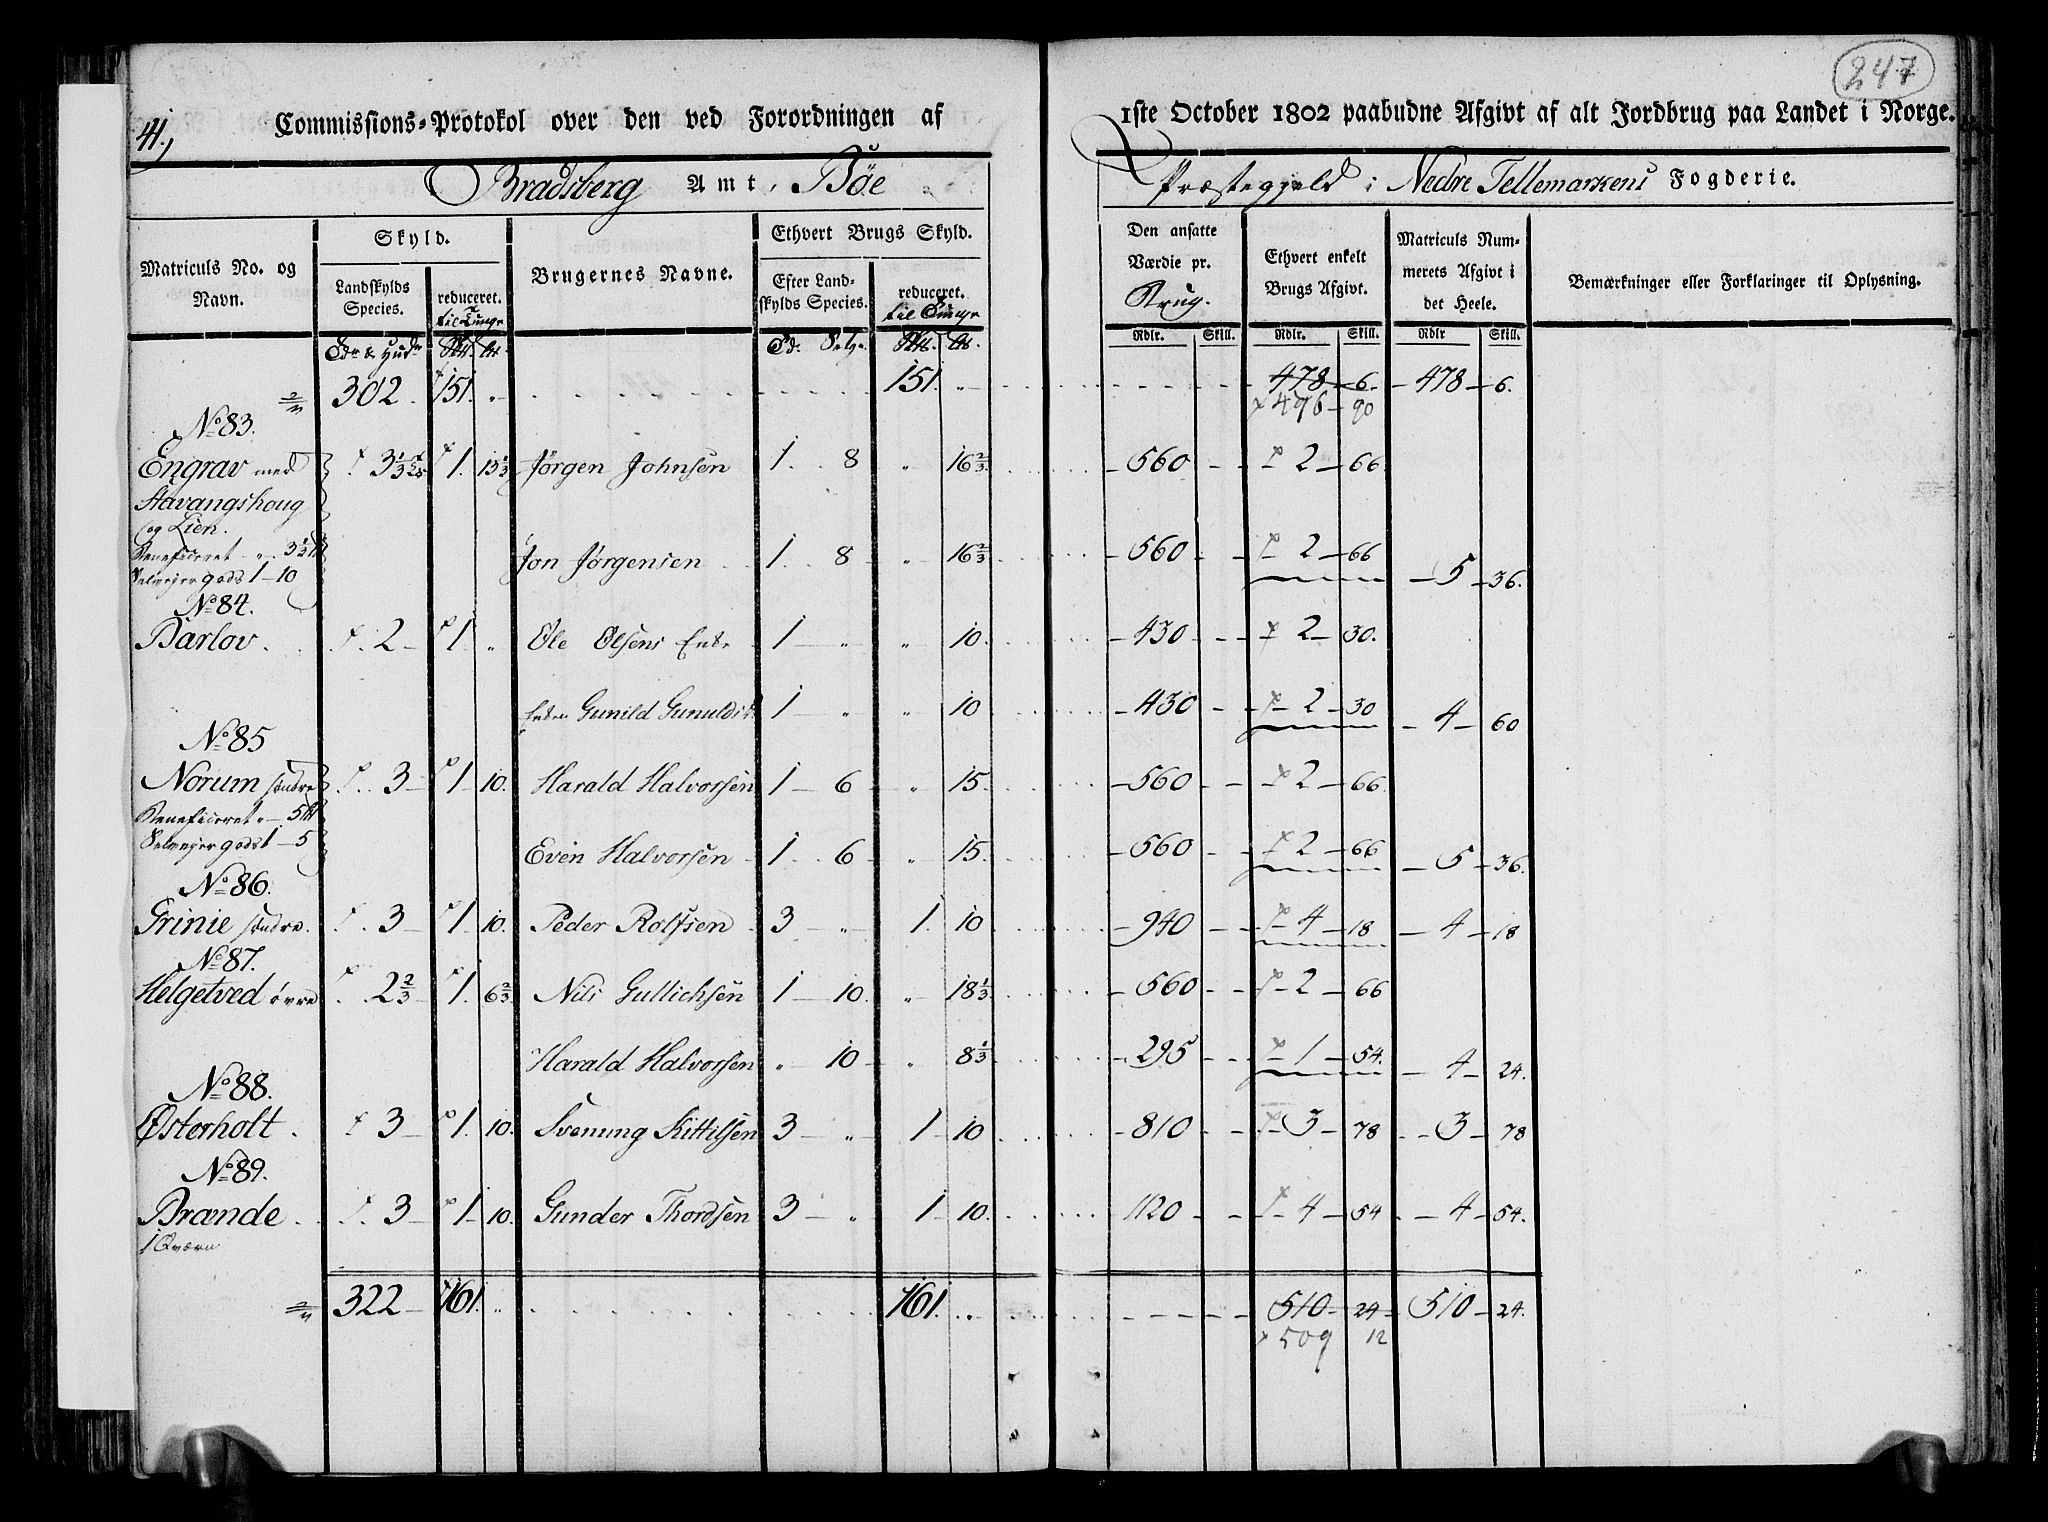 247
41.
Commissions-Protokol over den ved Forordningen af 1ste October 1802 paabudne Afgivt af alt Jordbrug paa Landet i Norge.
Bradsberg Amt, Bøe Præstegjeld i Nedre Tellemarkens Fogderie.
Matriculs No. og Navn.
Skyld.
Landskylds Species.
reduceret. til Tunge
Brugernes Navne.
Ethvert Brugs Skyld.
Efter Landskylds Species.
reduceret. til Tunge
Den ansatte Værdie pr. Brug.
Ethvert enkelt Brugs Afgivt.
Matriculs Nummerets Afgivt i det Heele.
Bemærkninger eller Forklaringer til Oplysning.
Rdlr. Skill. Rdlr. Skill. Rdlr Skill.
302. 151. „ 151. „ 478 6. 478 6.
496 90
No 83.
Engrav med 3 1/3 1. 13 1/3 Jørgen Johnsen 1. 8 „ 16 2/3 560 2 66.
Aavangshoug
og Lien.
Beneficeret „ 3 1/3 Jon Jørgensen 1. 8 „ 16 2/3 560 2 66 5 36.
Selvejer gods 1 10
No 84.
Barlov 2 1 „ Ole Olsens Enke 1 „ „ 10. 430 2 30.
Enken Gunild Gunuldsd. 1 „ „ 10 430 2 30 4 60
No 85
Norum søndre 3 1 10. Harald Halvorsen 1 6 „ 15. 560 2 66.
Beneficeret „ 5
Selvejer gods 1 5 Even Halvorsen 1. 6 „ 15. 560 2 66 5 36.
No 86.
Grinie søndre. 3 1 10. Peder Rolfsen 3 „ 1. 10 940 4 18 4 18
No 87.
Helgetved øvre 2 2/3 1. 6 2/3 Nils Gullichsen 1 10. „ 18 1/3 560 2 66
Harald Halvorsen „ 10 „ 8 1/3 295 1 54. 4 24.
No 88.
Østerholt 3 1. 10. Svenung Kittilsen 3 „ 1 10 810 3 78 3 78
No 89.
Brænde 3 1 10. Gunder Thordsen 3 „ 1 10. 1120 4 54 4 54.
1 Qværn
322 161. „ 161. „ 510 24 510 24.
509 12